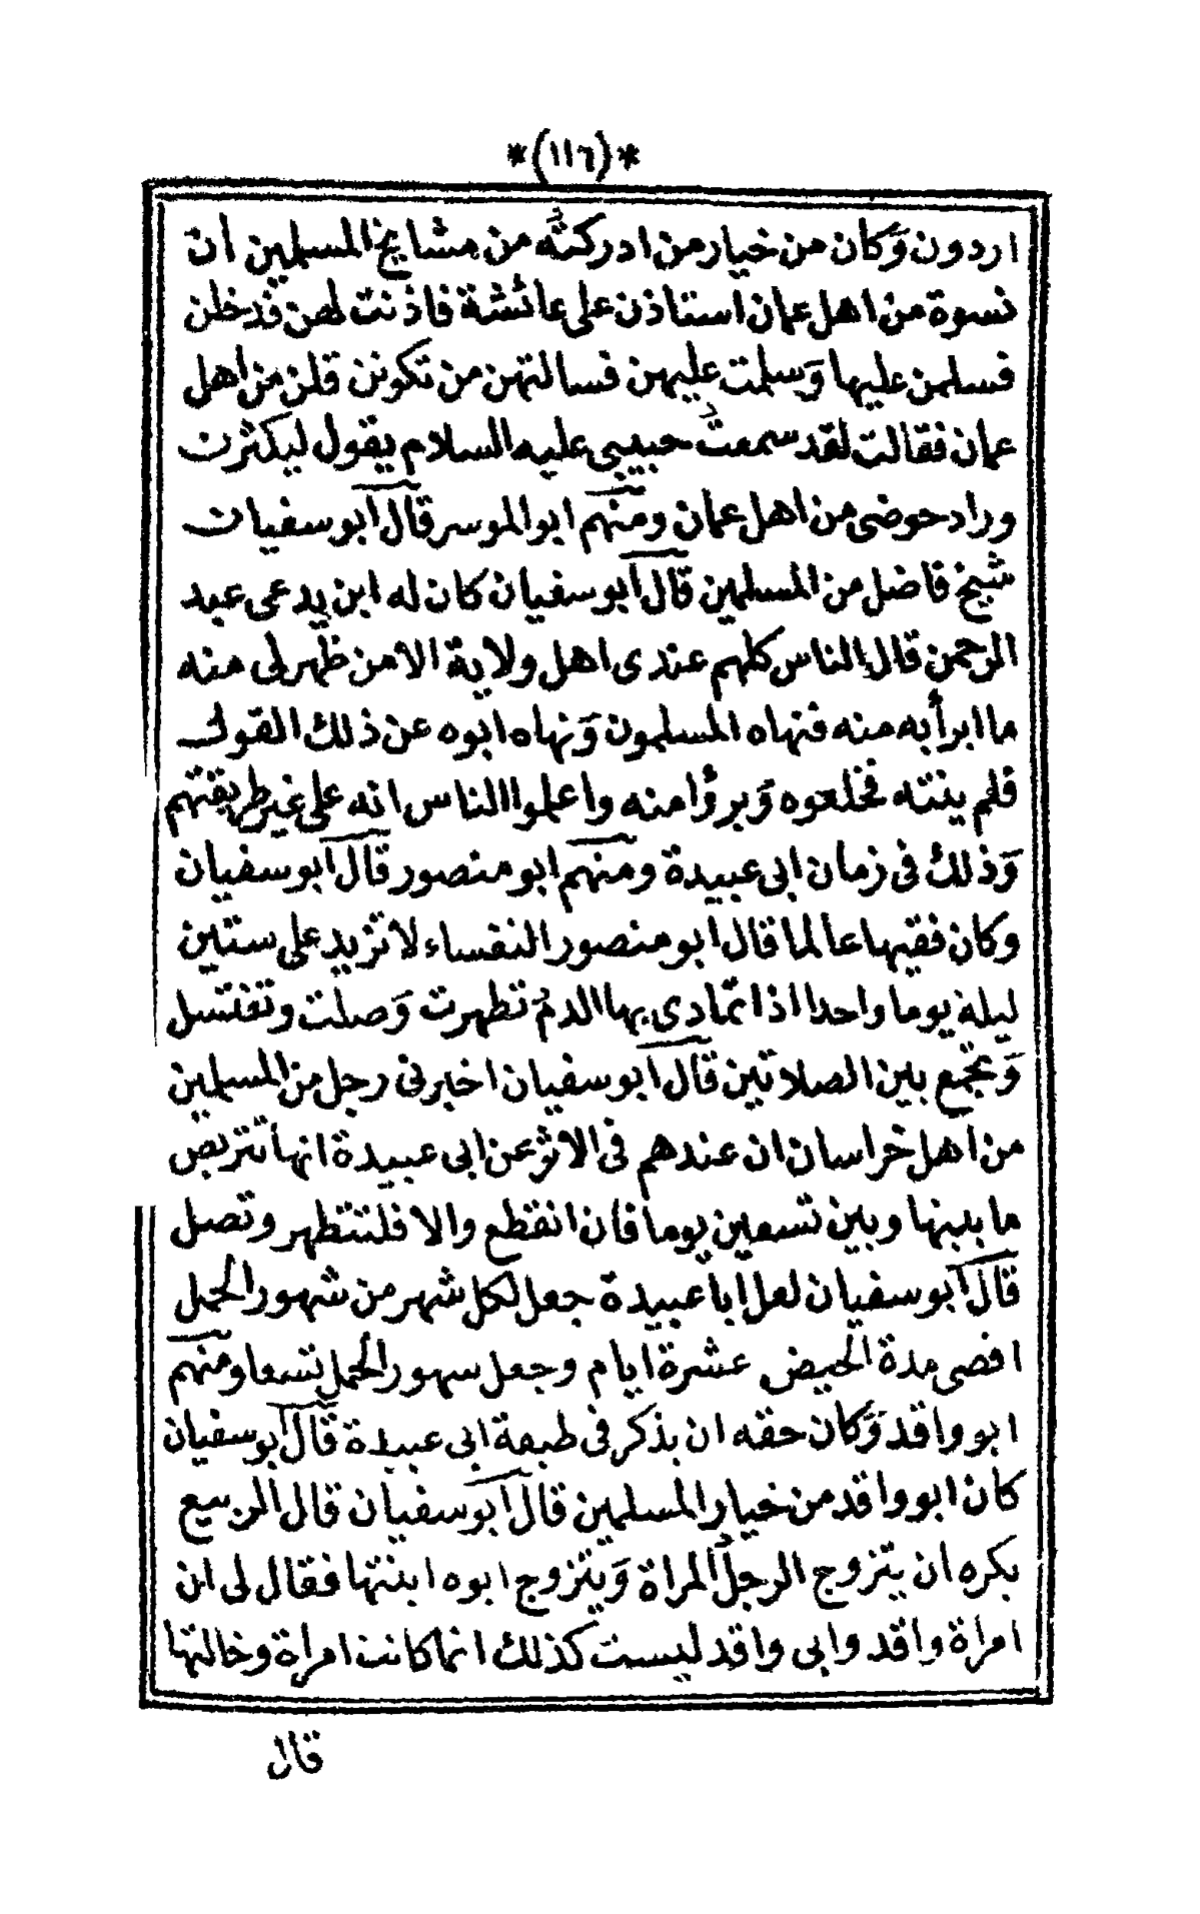 *(١١٦)*
اردون وَكان من خيار من ادركتُه من مشايخ المسلمين أن
نسوة من اهل عمان استاذن على عائشة فاذنت لهن فدخلن
فسلمن عليها وَسلمت عليهن فسالتهن من تكونن قلن من اهل
عمان فقالت لقد سمعتُ حبيبي عليه السلام يقول ليكثرن
وراد حوضى من اهل عمان ومنهم ابو الموسر قال أبو سفيان
شيخ فاضل من المسلمين قال أبو سفيان كان له ابن يدعى عبد
الرحمن قال الناس كلهم عندى اهل ولاية الا من ظهر لى منه
ما ابرأ به منه فنهاه المسلمون وَنهاه ابوه عن ذلك القول
فلم ينته فخلعوه وَبرؤا منه واعلموا الناس انه على غير طريقتهم
وَذلك فى زمان ابى عبيدة ومنهم ابو منصور قال أبو سفيان
وكان فقيها عالما قال ابو منصور النفساء لا تزيد على ستين
ليلة يوما واحدا اذا تمادى بها الدمُ تطهرت وَصلت وتغتسل
وَتجمع بين الصلاتين قال أبو سفيان اخبرنى رجل من المسلمين
من اهل خراسان ان عندهم فى الاثر عن ابى عبيدة انها تتربص
ما بينها وبين تسعين يوما فان انقطع والا فلتتطهر وتصل
قال أبو سفيان لعل ابا عبيدة جعل لكل شهر من شهور الحمل
اقصى مدة الحيض عشرة ايام وجعل سهور الحمل تسعا ومنهم
ابو واقد وَكان حقه ان يذكر فى طبقة ابى عبيدة قال أبو سفيان
كان ابو واقد من خيار المسلمين قال أبو سفيان قال الربيع
يكره ان يتزوج الرجلُ المراة وَيتزوج ابوه ابنتها فقال لى ان
امراة واقد وابى واقد ليست كذلك انما كانت امراة وخالتها
قال